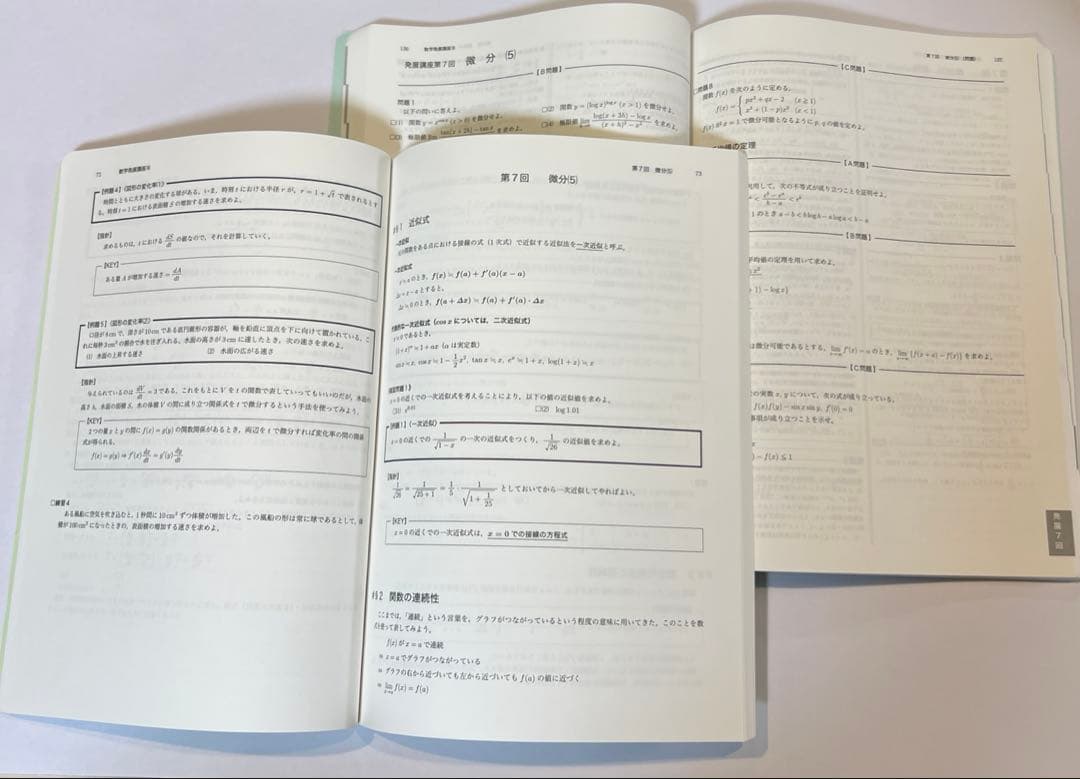 72 数学発展講座Ⅲ
【例題4】(図形の変化率①)
時間とともに大きさの変化する球がある。いま、時刻 t における半径 r が、r = 1 + √t で表されるとする。時刻 t = 1 における表面積 S の増加する速さを求めよ。
【指針】
求めるものは、t における dS/dt の値なので、それを計算していく。
【KEY】
ある量 A が増加する速さ = dA/dt
【例題5】(図形の変化率②)
口径が 8 cm で、深さが 10 cm である直円錐形の容器が、軸を鉛直に頂点を下に向けて置かれている。これに毎秒 3 cm³ の割合で水を注ぎ入れる。水面の高さが 3 cm に達したとき、次の速さを求めよ。
(1) 水面の上昇する速さ (2) 水面の広がる速さ
【指針】
与えられているのは dV/dt = 3 である。これをもとに V を t の関数で表していってもいいのだが、水面の
高さ h、水面の面積 S、水の体積 V の間に成り立つ関係式を t で微分するという手法を使ってみよう。
【KEY】
2つの量 x と y の間に f(x) = g(y) の関数関係があるとき、両辺を t で微分すれば変化率の間の関係
式が得られる。
f(x) = g(y) ⇒ f'(x) dx/dt = g'(y) dy/dt
□練習4
ある風船に空気を吹き込むと、1秒間に 10 cm³ ずつ体積が増加した。この風船の形は常に球であるとして、体
積が 100 cm³ になったときの、表面積の増加する速さを求めよ。
第7回 微分⑤ 73
第7回 微分⑤
§1 近似式
関数をある点における接線の式(1次式)で近似する近似法を一次近似と呼ぶ。
x ≒ a のとき、f(x) ≒ f(a) + f'(a)(x − a)
Δx = x − a とすると、
Δx ≒ 0 のとき、f(a + Δx) ≒ f(a) + f'(a)・Δx
一次近似式 (cos x については、二次近似式)
x ≒ 0 であるとき、
(1 + x)^α ≒ 1 + αx (α は実定数)
sin x ≒ x, cos x ≒ 1 − 1/2 x², tan x ≒ x, e^x ≒ 1 + x, log(1 + x) ≒ x
x = 0 の近くでの一次近似式を考えることにより、以下の値の近似値を求めよ。
□(1) e^0.01 □(2) log 1.01
【例題1】(一次近似)
x = 0 の近くでの 1/√(1 − x) の一次の近似式をつくり、1/√26 の近似値を求めよ。
【指針】
1/√26 = 1/√(25 + 1) = 1/5 ・ 1/√(1 + 1/25) としておいてから一次近似してやればよい。
【KEY】
x = 0 の近くでの一次近似式は、x = 0 での接線の方程式
§2 関数の連続性
ここまでは、「連続」という言葉を、グラフがつながっているという程度の意味に用いてきた。このことを数
式を使って表してみよう。
f(x) が x = a で連続
⇔ x = a でグラフがつながっている
⇔ グラフの右から近づいても左から近づいても f(a) の値に近づく
⇔ lim x→a f(x) = f(a)
数学発展講座Ⅲ
発展講座第7回 微分 ⑤
【B問題】
問題1
以下の問いに答えよ。
(x > 0) を微分せよ。
□(2) 関数 y = (log x)^log x (x > 1) を微分せよ。
tan(x + 2h) − tan x
を求めよ。
□(4) 極限値 lim log(x + 3h) − log x / (x + h)² − x² を求めよ。
【C問題】
関数 f(x) を次のように定める。
f(x) = { px² + qx − 2 (x ≧ 1)
x³ + (1 − p)x² (x < 1)
f(x) が x = 1 で微分可能となるように p, q の値を定めよ。
の定理
【A問題】
利用して、次の不等式が成り立つことを証明せよ。
のとき a − b < b log b − a log a < b − a
【B問題】
平均値の定理を用いて求めよ。
は微分可能であるとする。lim f'(x) = a のとき、lim {f(x + a) − f(x)} を求めよ。
【C問題】
の実数 x, y について、次の式が成り立っている。
f(x)f(y) − sin x sin y, f'(0) = 0
事項が成り立つことを示せ。
− f(x) ≦ 1
発展7回